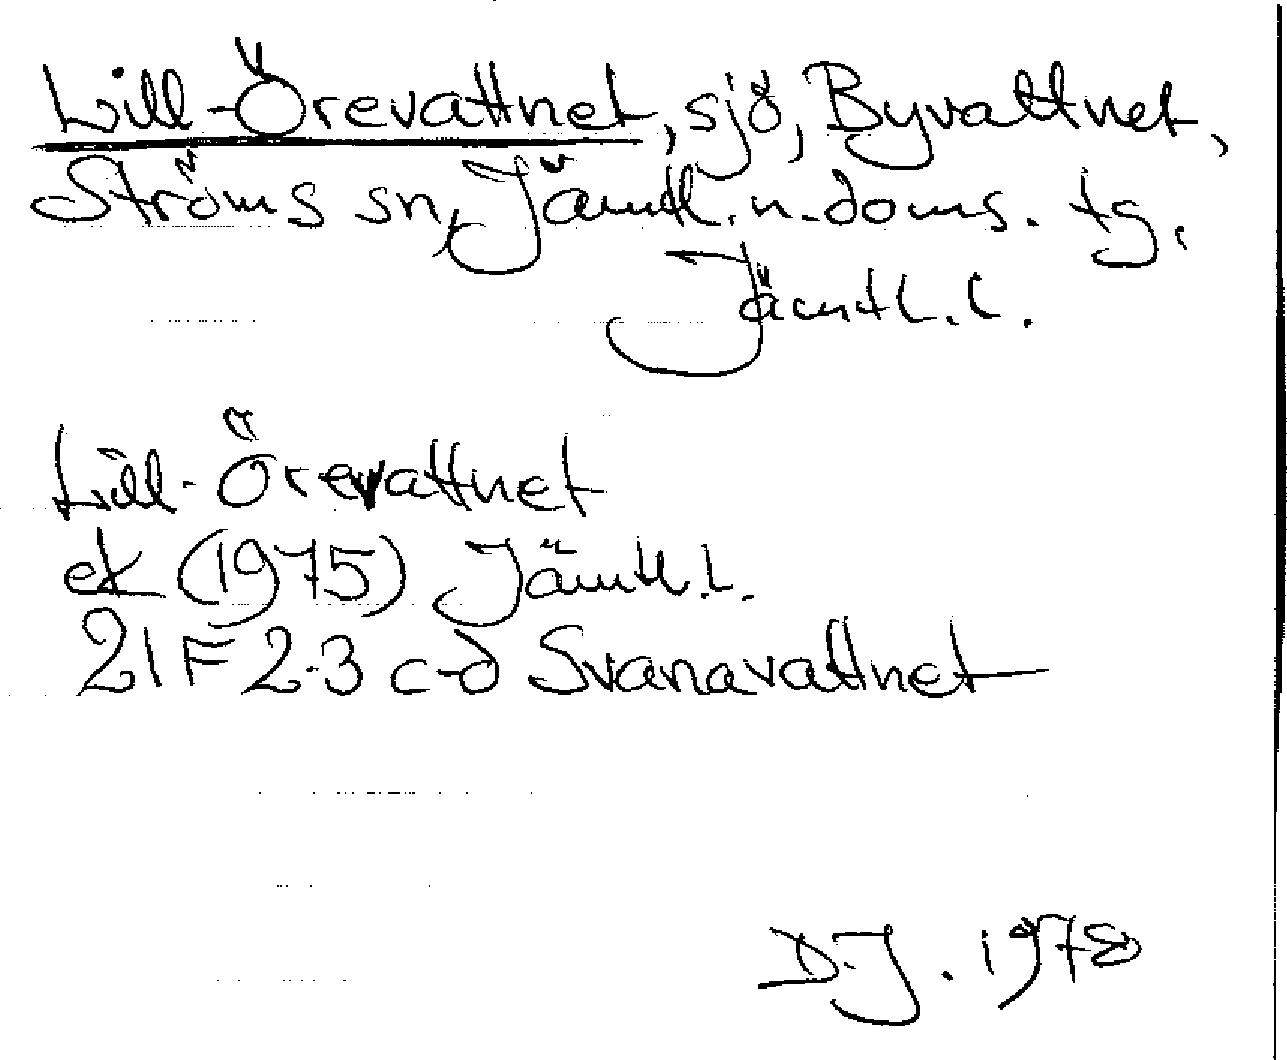 Lill-Örevattnet, sjö, Byvattnet,
Ströms sn, Jämtl. n. doms. tg,
Jämtl. l.
Lill-Örevattnet
ek (1975) Jämtl. l.
21F 2-3 c-d Svanavattnet
D.J. 1978